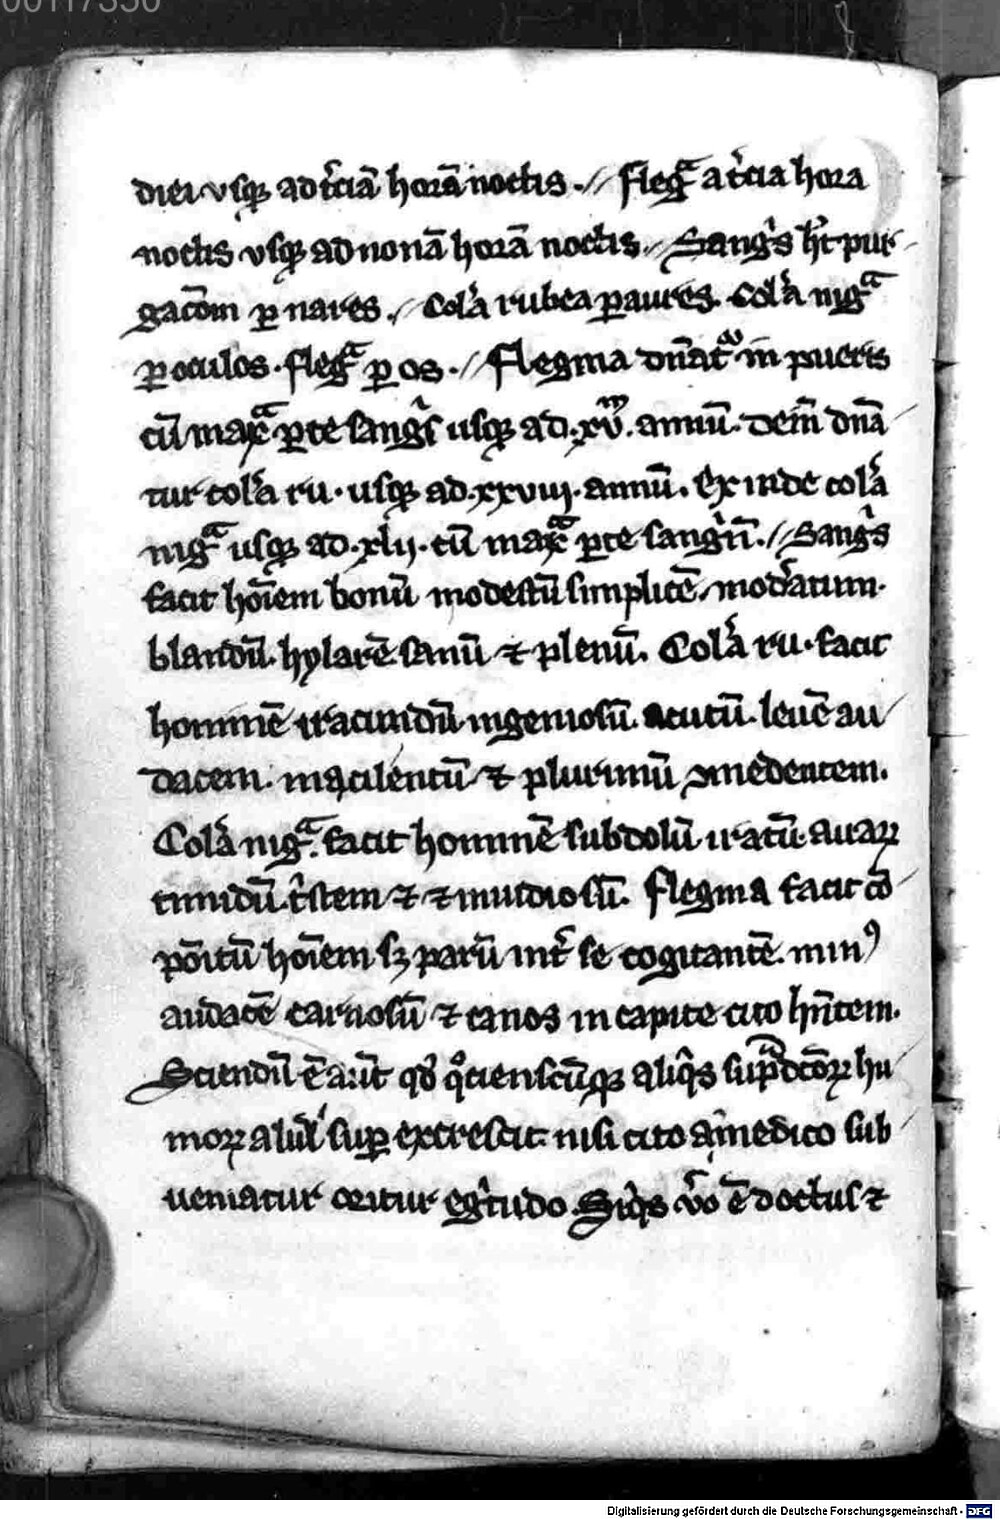 00117350
diei vsqꝫ ad t̾ciā horā noctis .// flegͣ a t̾cia hora
noctis vsqꝫ ad nonā horā noctis. Sangͥs hꝫt pur-
gac̄om ꝑ nares. Col̾a rubea ꝑ aures. Col̾a nigͣ
ꝑ oculos. flegͣ ꝑ os. // flegma dn̄at᷑ in pueris
cū maxͣ ꝑte sangͥs usqꝫ ad .xv. annū. dein̄ dn̄a
tur col̾a ru. usqꝫ ad .xxviij. annū. Ex inde col̾a
nigͣ usqꝫ ad .xlij. cū maxͣ ꝑte sangͥn̄. // Sangͥs
facit hoīem bonū modestū simplicē. mod̾atum.
blandū. hylarē sanū ⁊ plenū. Col̾a ru. facit
hominē iracundū ingeniosū. acutū. leuē au
dacem. macilentū ⁊ plurimū ꝯmedentem.
Col̾a nigͣ. facit hominē subdolū iratū. auarꝝ
timidū. tͥstem ⁊ ⁊ inuidiosū. flegma facit cō
pōitū hoīem sꝫ parū int̾ se cogitantē. minꝰ
audacē carnosū ⁊ canos in capite cito hn̄tem.
Sciendū ē aūt qd̓ qͦcienscūqꝫ aliqͥs sup͛dc̄oꝝ hu
moꝝ alul̓ suꝑ excrescit. nisi cito a medico sub
ueniatur oritur egͥtudo. Siqͥs v̓o ē doctus ⁊
Digitalisierung gefördert durch die Deutsche Forschungsgemeinschaft - DFG